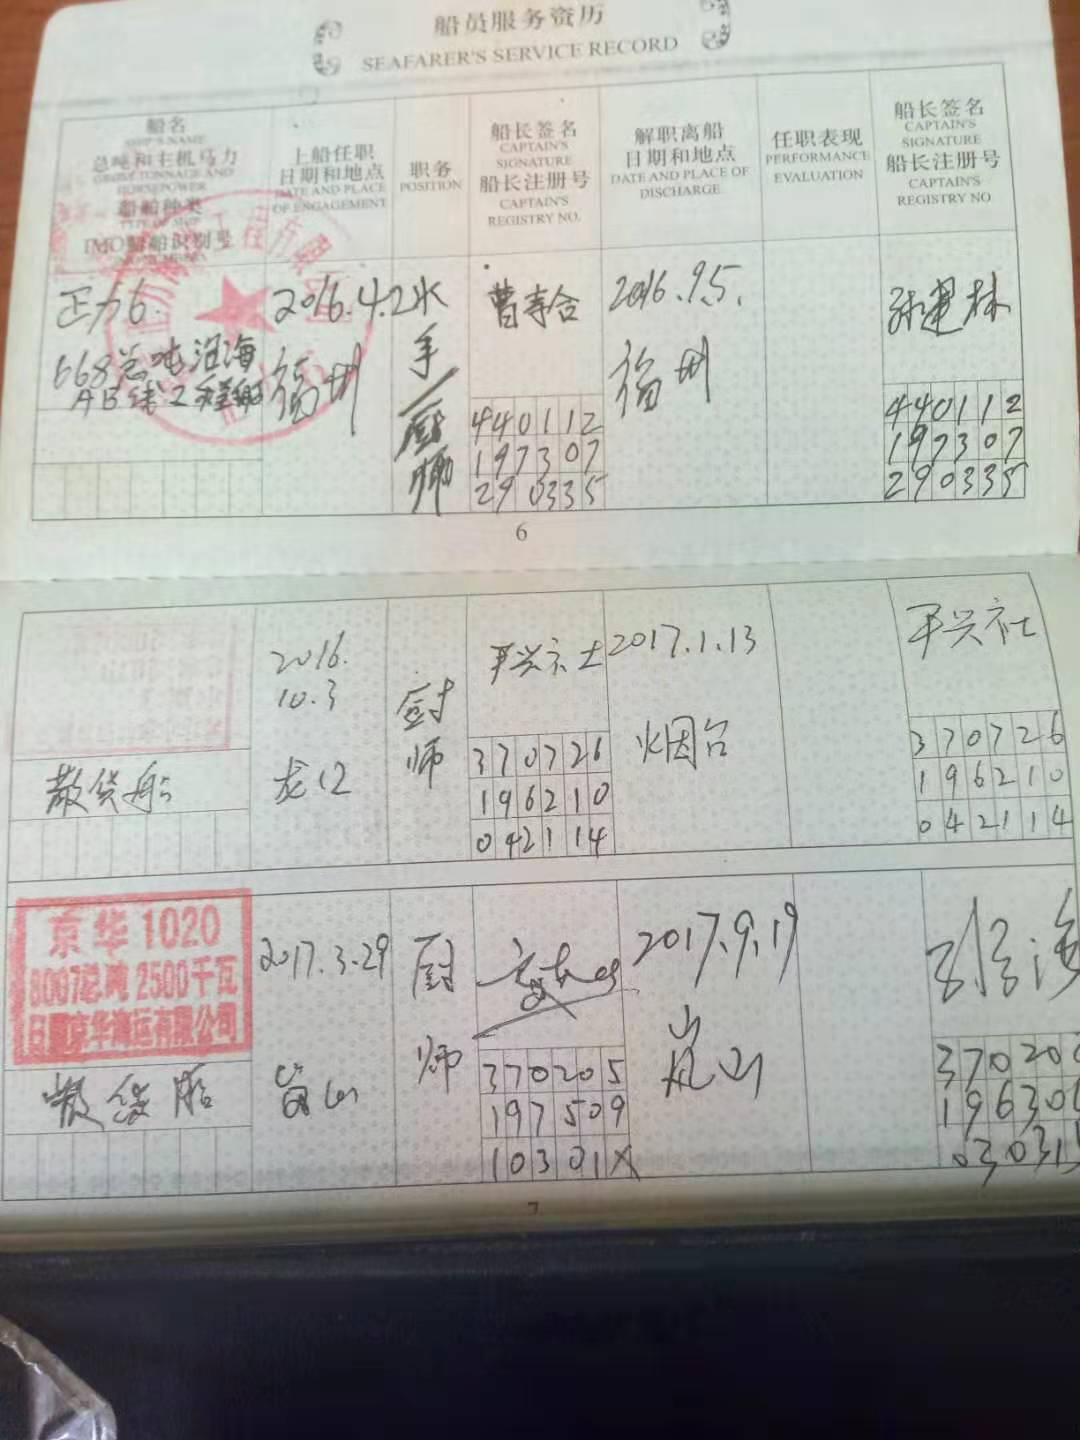 船员服务资历
SEAFARER'S SERVICE RECORD
船名
SHIP'S NAME
总吨和主机马力
GROSS TONNAGE AND
HORSEPOWER
船舶种类
TYPE OF SHIP
IMO船舶识别号
上船任职
日期和地点
DATE AND PLACE
OF ENGAGEMENT
职务
POSITION
船长签名
CAPTAIN'S
SIGNATURE
船长注册号
CAPTAIN'S
REGISTRY NO.
解职离船
日期和地点
DATE AND PLACE OF
DISCHARGE
任职表现
PERFORMANCE
EVALUATION
船长签名
CAPTAIN'S
SIGNATURE
船长注册号
CAPTAIN'S
REGISTRY NO
正力6.
668总吨沿海
AB线工程船
2016.4.2
福州
水
手/
厨
师
440112
197307
290335
2016.9.5.
福州
440112
197307
290335
6
散货船
2016.
10.3
龙口
厨
师
370726
196210
042114
2017.1.13
烟台
370726
196210
042114
京华1020
8007总吨2500千瓦
日照京华海运有限公司
散货船
2017.3.29
岚山
厨
师
370205
197509
10301X
2017.9.19
岚山
7